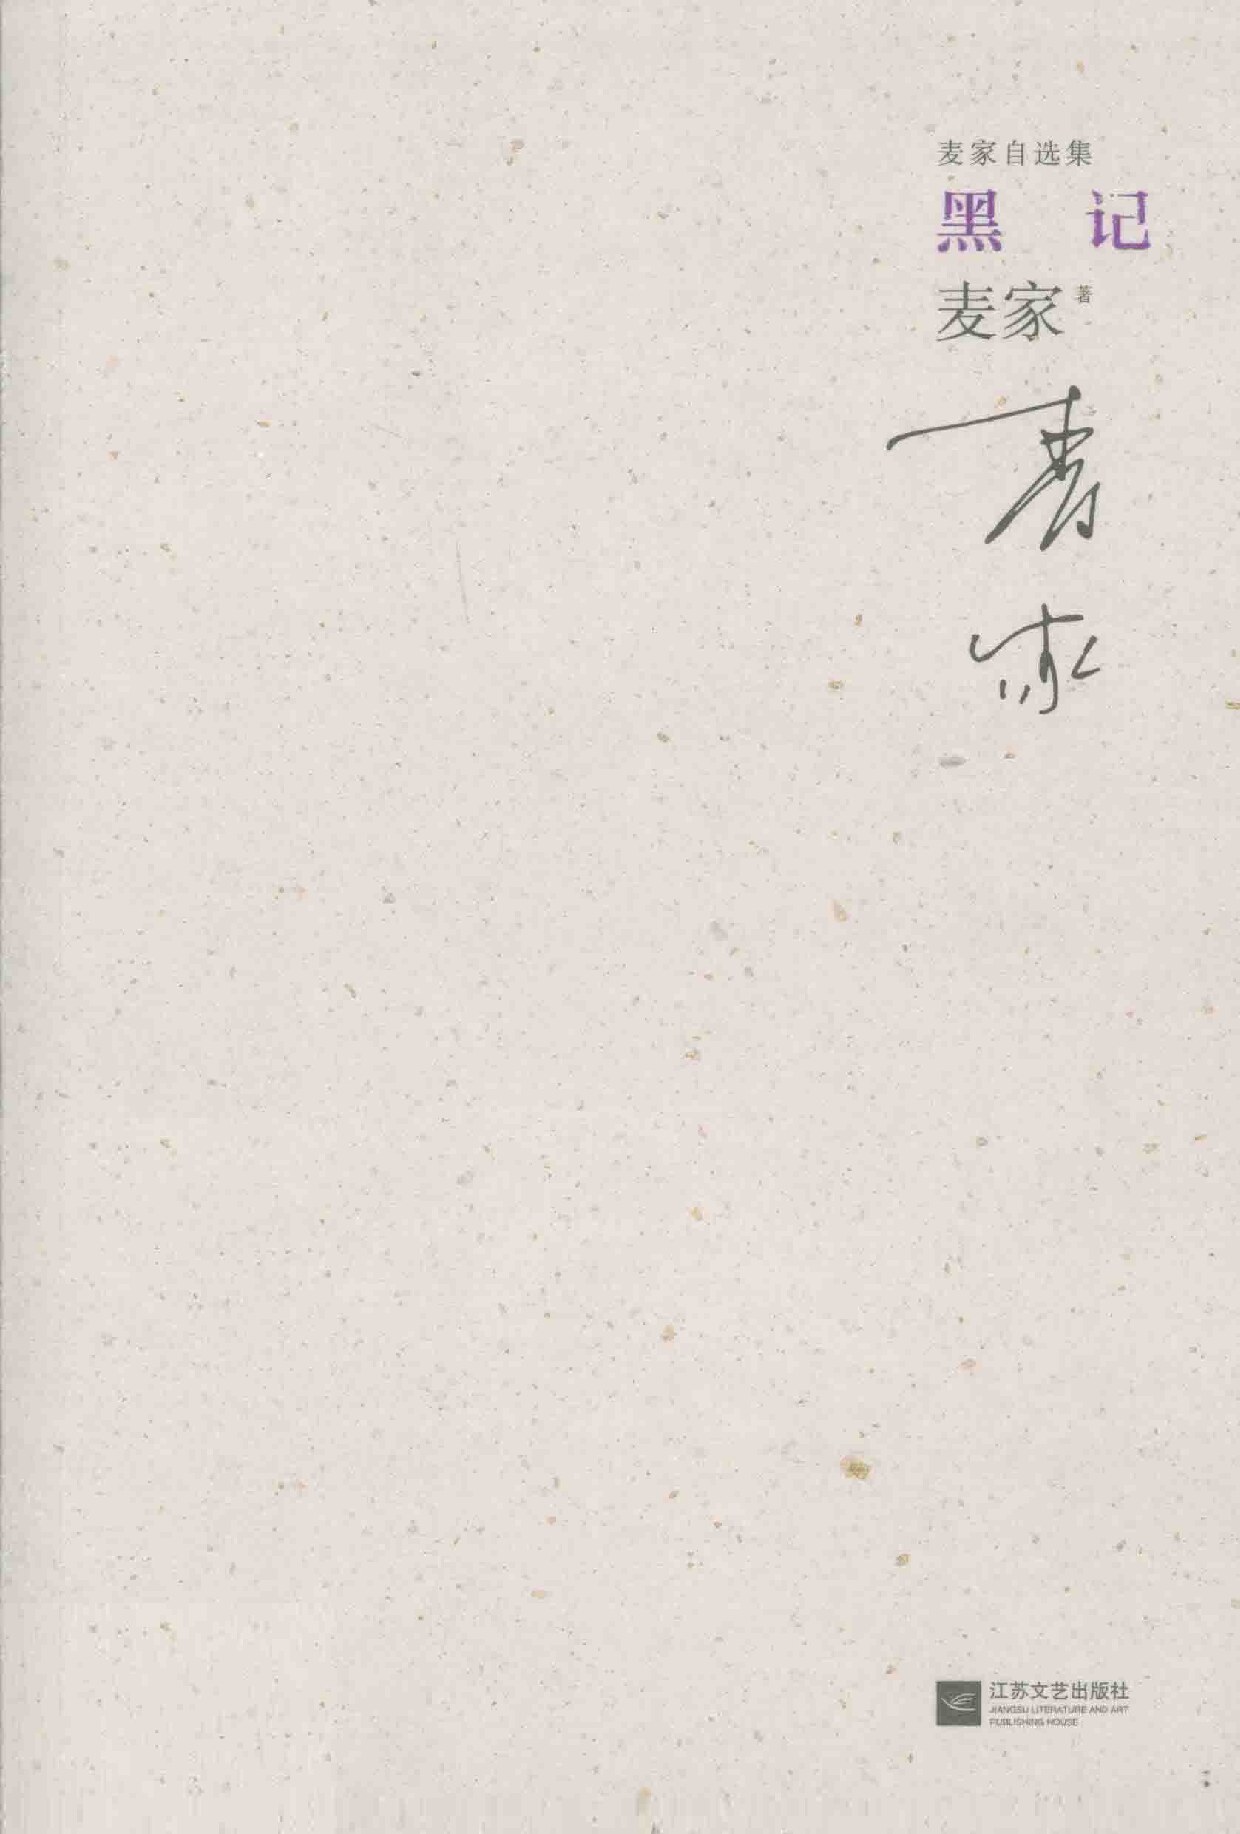 麦家自选集
黑 记
麦家 著
麦家
江苏文艺出版社
JIANGSU LITERATURE AND ART
PUBLISHING HOUSE